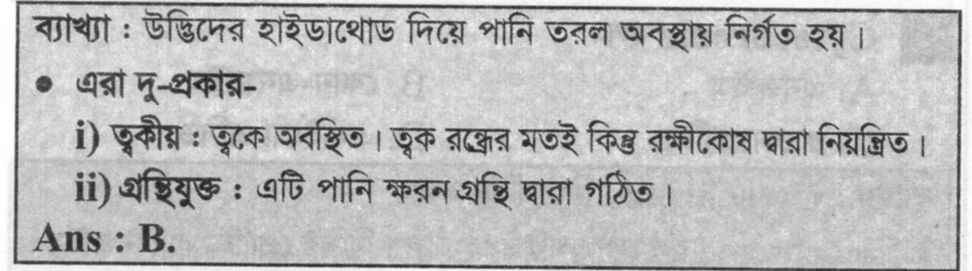 ব্যাখ্যা : উদ্ভিদের হাইডাথোড দিয়ে পানি তরল অবস্থায় নির্গত হয়।
● এরা দু-প্রকার-
i) ত্বকীয় : ত্বকে অবস্থিত। ত্বক রন্ধ্রের মতই কিন্তু রক্ষীকোষ দ্বারা নিয়ন্ত্রিত।
ii) গ্রন্থিযুক্ত : এটি পানি ক্ষরন গ্রন্থি দ্বারা গঠিত।
Ans : B.